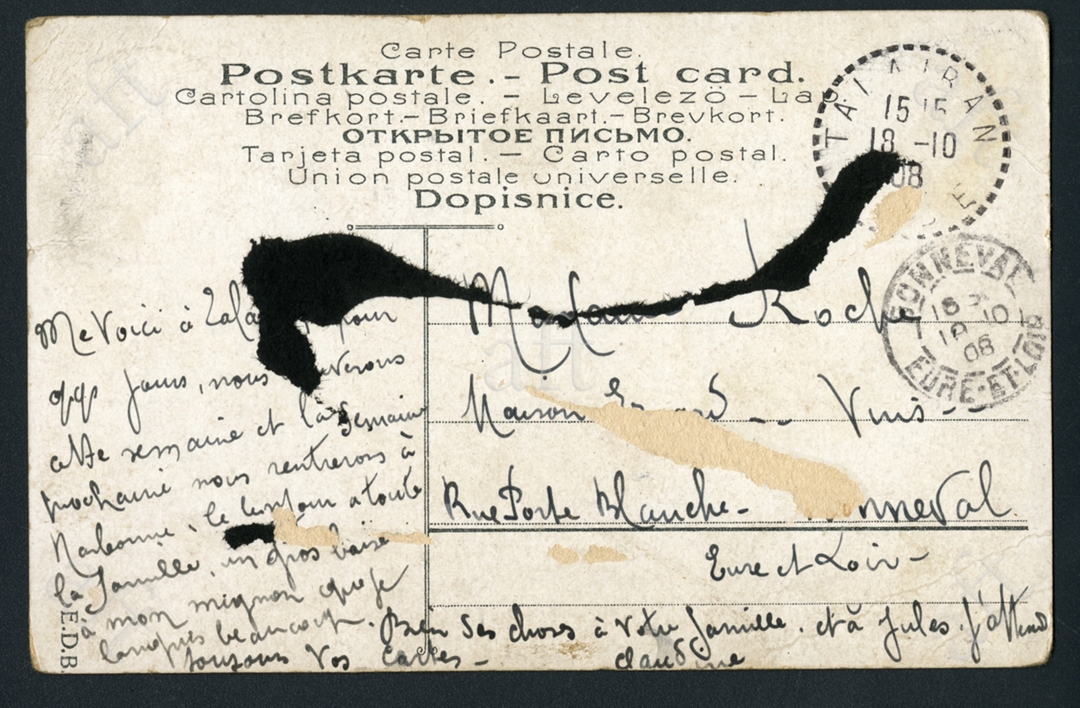 Carte Postale.
Postkarte.- Post card.
Cartolina postale. - Levelezö - Lap
Brefkort.-Briefkaart.-Brevkort.
ОТКРЫТОЕ ПИСЬМО.
Tarjeta postal. - Carto postal.
Union postale universelle.
Dopisnice.
15 15
18 -10
08
BONNEVAL
18 10
08
EURE-ET-LOIR
Me voici à pour
qqs jours, nous
cette semaine et la semaine
prochaine nous rentrerons à
Narbonne. le bonjour a toute
la famille, un gros baise
à mon mignon que je
beaucoup.
Madame Koch
Maison Vins-
Rue Porte Blanche- nneval
Eure et Loir-
Bien des choses à votre famille. et à Jules. j'attend
toujours vos cartes-
claudine
E.D.B.
aft